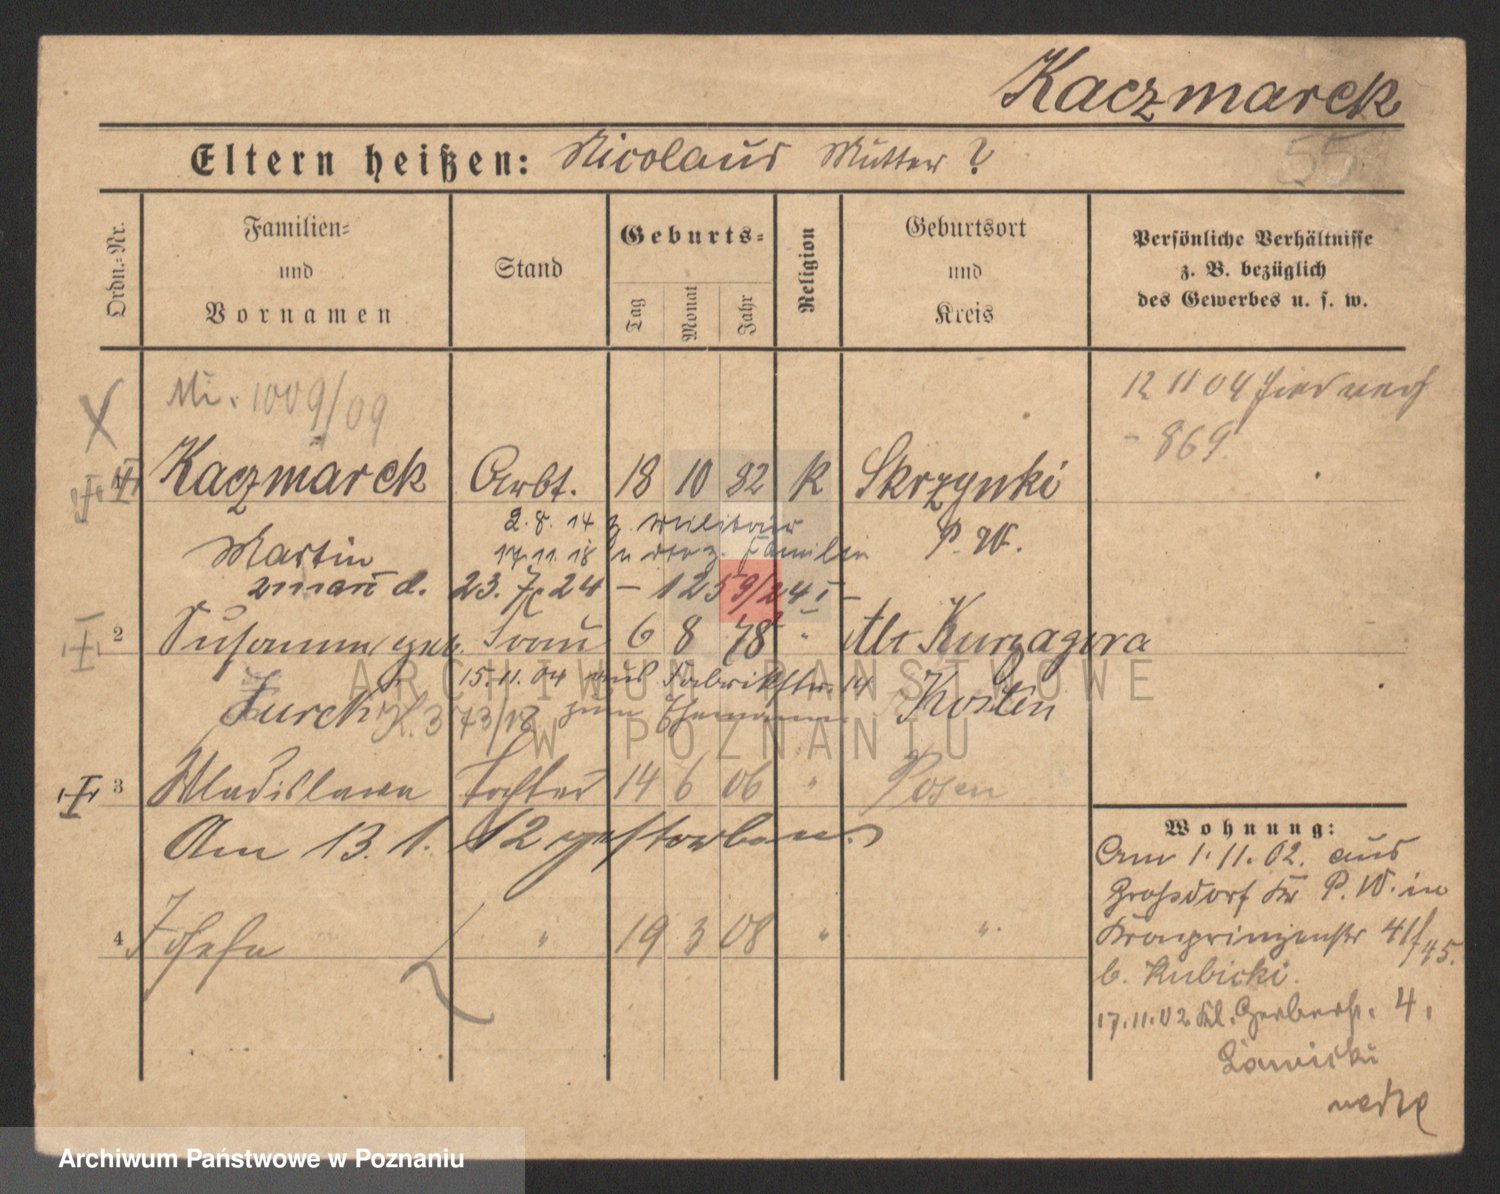 Kaczmarek
55
Eltern heißen: Nicolaus Mutter ?
Ordn.-Nr.
Familien- und Vornamen
Stand
Geburts-
Tag Monat Jahr
Religion
Geburtsort und Kreis
Persönliche Verhältnisse
z. B. bezüglich
des Gewerbes u. s. w.
1009/09
12 11 04
- 869.
Kaczmarek Arbt. 18 10 82 K Skrzynki
2. 8. 14 z. Militair
P. W.
Martin
17. 11. 18 Familie
23. 7. 24 - 1259/24 I -
2 Susanna geb. Frau 6 8 78 " Alt Kurzagora
15. 11. 04 aus Fabrikstr. 14
Jurek K. 373/18 zum Ehemann Kosten
3 Wladislawa Tochter 14 6 06 " Posen
Am 13. 1. 12 gestorben.
4 Josefa " 19 3 08 " "
Wohnung:
Am 1. 11. 02. aus
Großdorf Kr P. W. in
Kronprinzenstr 41/45.
b. Kubicki.
17. 11. 02 Kl. Gerberstr. 4.
ARCHIWUM PAŃSTWOWE
W POZNANIU
Archiwum Państwowe w Poznaniu